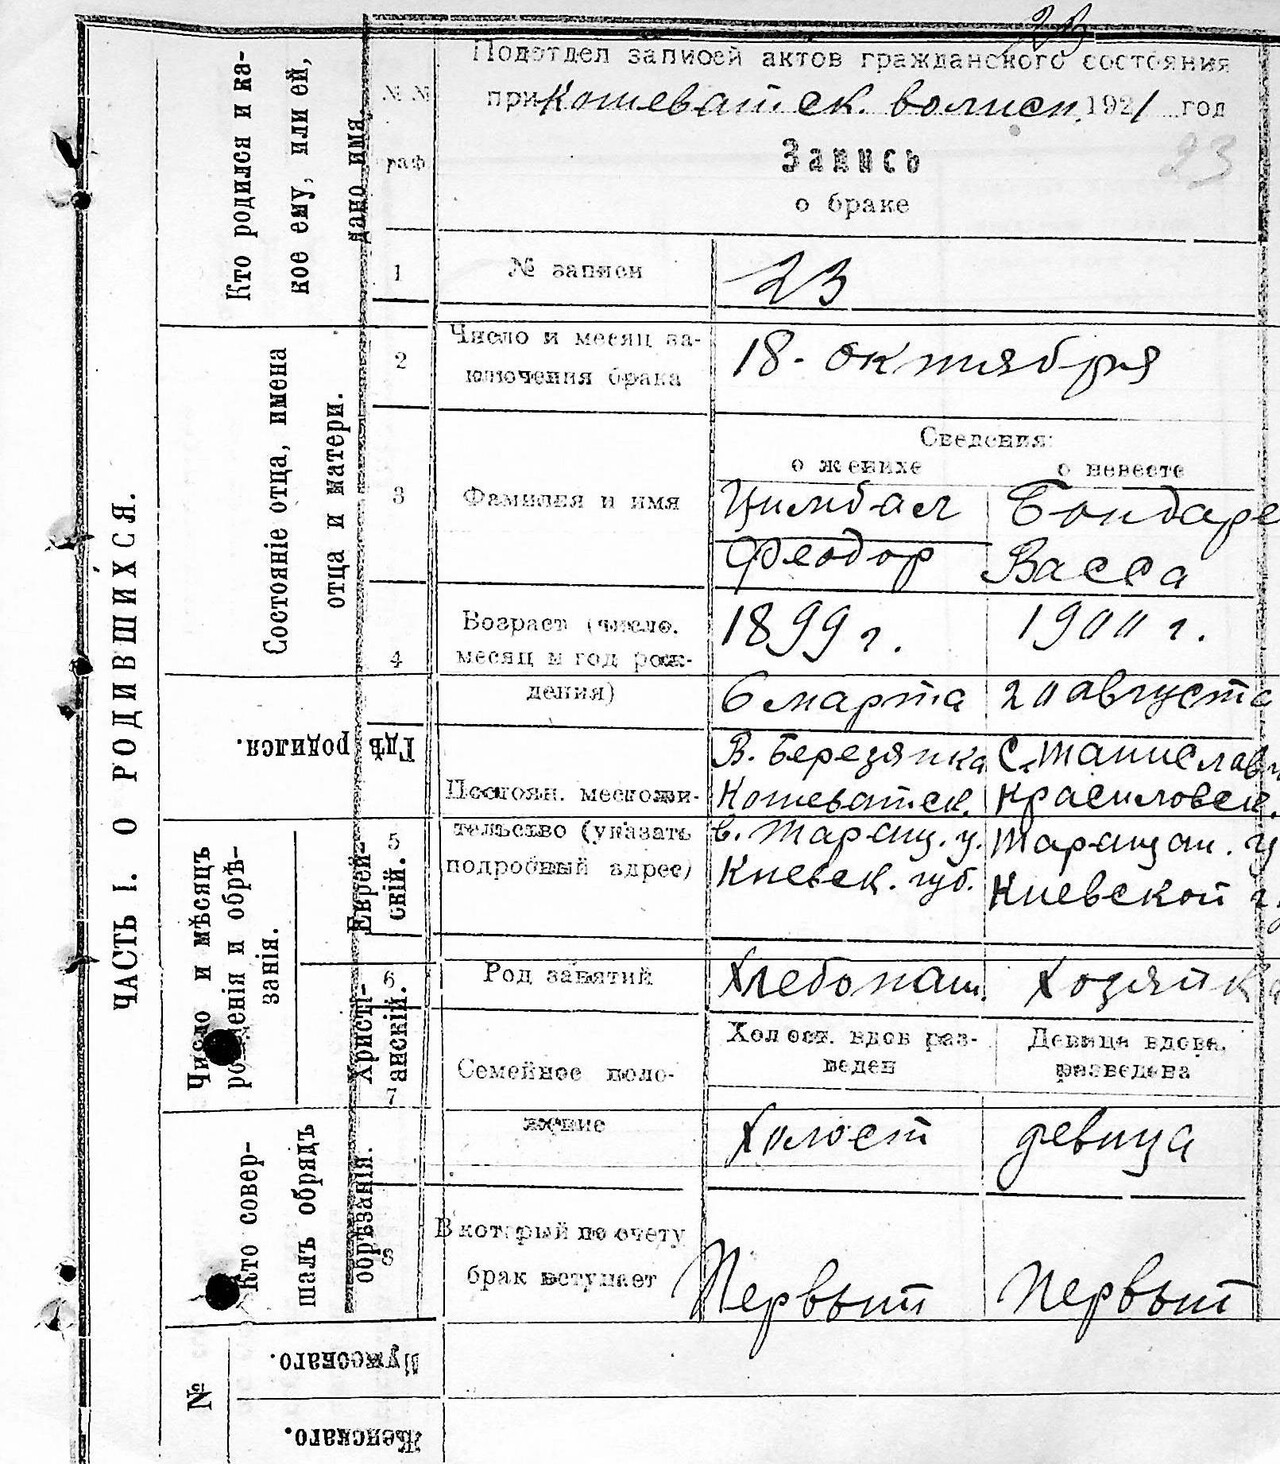 23
Подотдел записей актов гражданского состояния
при Кошеватск. волисп. 1921 год
Запись
23
о браке
№ №
граф
1 № записи 23
2 Число и месяц за-
ключения брака
18 - октября
Сведения:
о женихе о невесте
3 Фамилия и имя Цимбал Бондаре
Феодор Васса
4 Возраст (число,
месяц и год рож-
дения)
1899 г. 1900 г.
6 марта 20 августа
5 Постоян. местожи-
тельство (указать
подробный адрес)
В. Березянка
Кошеватск.
в. Таращ. у.
Киевск. губ.
С. Станиславч
Красиловск.
Таращан. у
Киевской г
6 Род занятий Хлебопаш. Хозяйка
7 Семейное поло-
жение
Холост. вдов раз-
веден
Девица вдова,
разведена
Холост девица
8 В который по счету
брак вступает
Первый Первый
ЧАСТЬ I. О РОДИВШИХСЯ.
Кто родился и ка-
кое ему, или ей,
дано имя.
Состояніе отца, имена
отца и матери.
Гдѣ родился.
Число и мѣсяцъ
рожденія и обрѣ-
занія.
Еврей-
скій.
Христі-
анскій.
Кто совер-
шалъ обрядъ
обрѣзанія.
№
Мужескаго.
Женскаго.